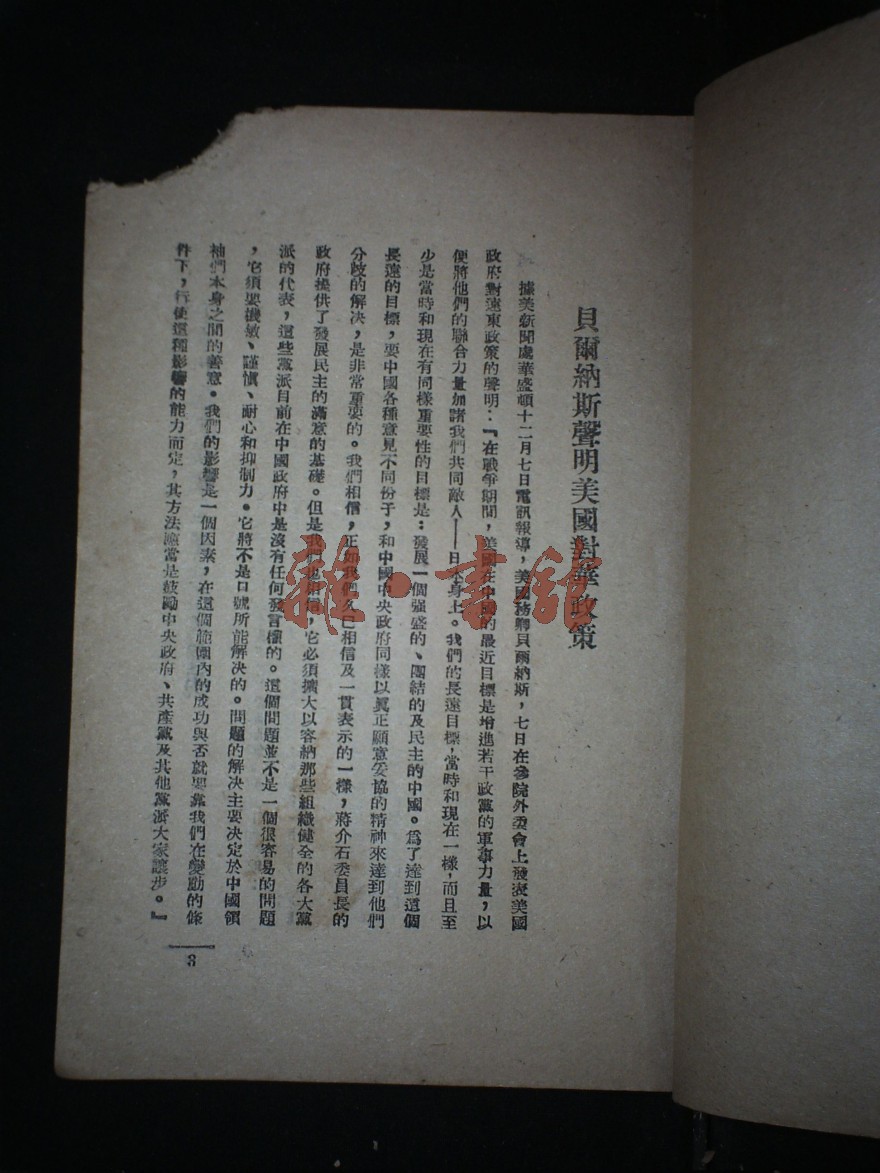 貝爾納斯聲明美國對華政策
據美新聞處華盛頓十二月七日電訊報導，美國務卿貝爾納斯，七日在參院外委會上發表美國
政府對遠東政策的聲明：『在戰爭期間，美國在中國的最近目標是增進若干政黨的軍事力量，以
便將他們的聯合力量加諸我們共同敵人——日本身上。我們的長遠目標，當時和現在一樣，而且至
少是當時和現在有同樣重要性的目標是：發展一個強盛的、團結的及民主的中國。為了達到這個
長遠的目標，要中國各種意見不同份子，和中國中央政府同樣以眞正願意妥協的精神來達到他們
分歧的解决，是非常重要的。我們相信，正如我們久已相信及一貫表示的一樣，蔣介石委員長的
政府提供了發展民主的滿意的基礎。但是我們也相信，它必須擴大以容納那些組織健全的各大黨
派的代表，這些黨派目前在中國政府中是沒有任何發言權的。這個問題並不是一個很容易的問題
，它須要機敏、謹愼、耐心和抑制力。它將不是口號所能解决的。問題的解决主要决定於中國領
袖們本身之間的善意。我們的影響是一個因素，在這個範圍內的成功與否就要靠我們在變動的條
件下，行使這種影響的能力而定，其方法應當是鼓勵中央政府、共產黨及其他黨派大家讓步。』
3
雜·書館